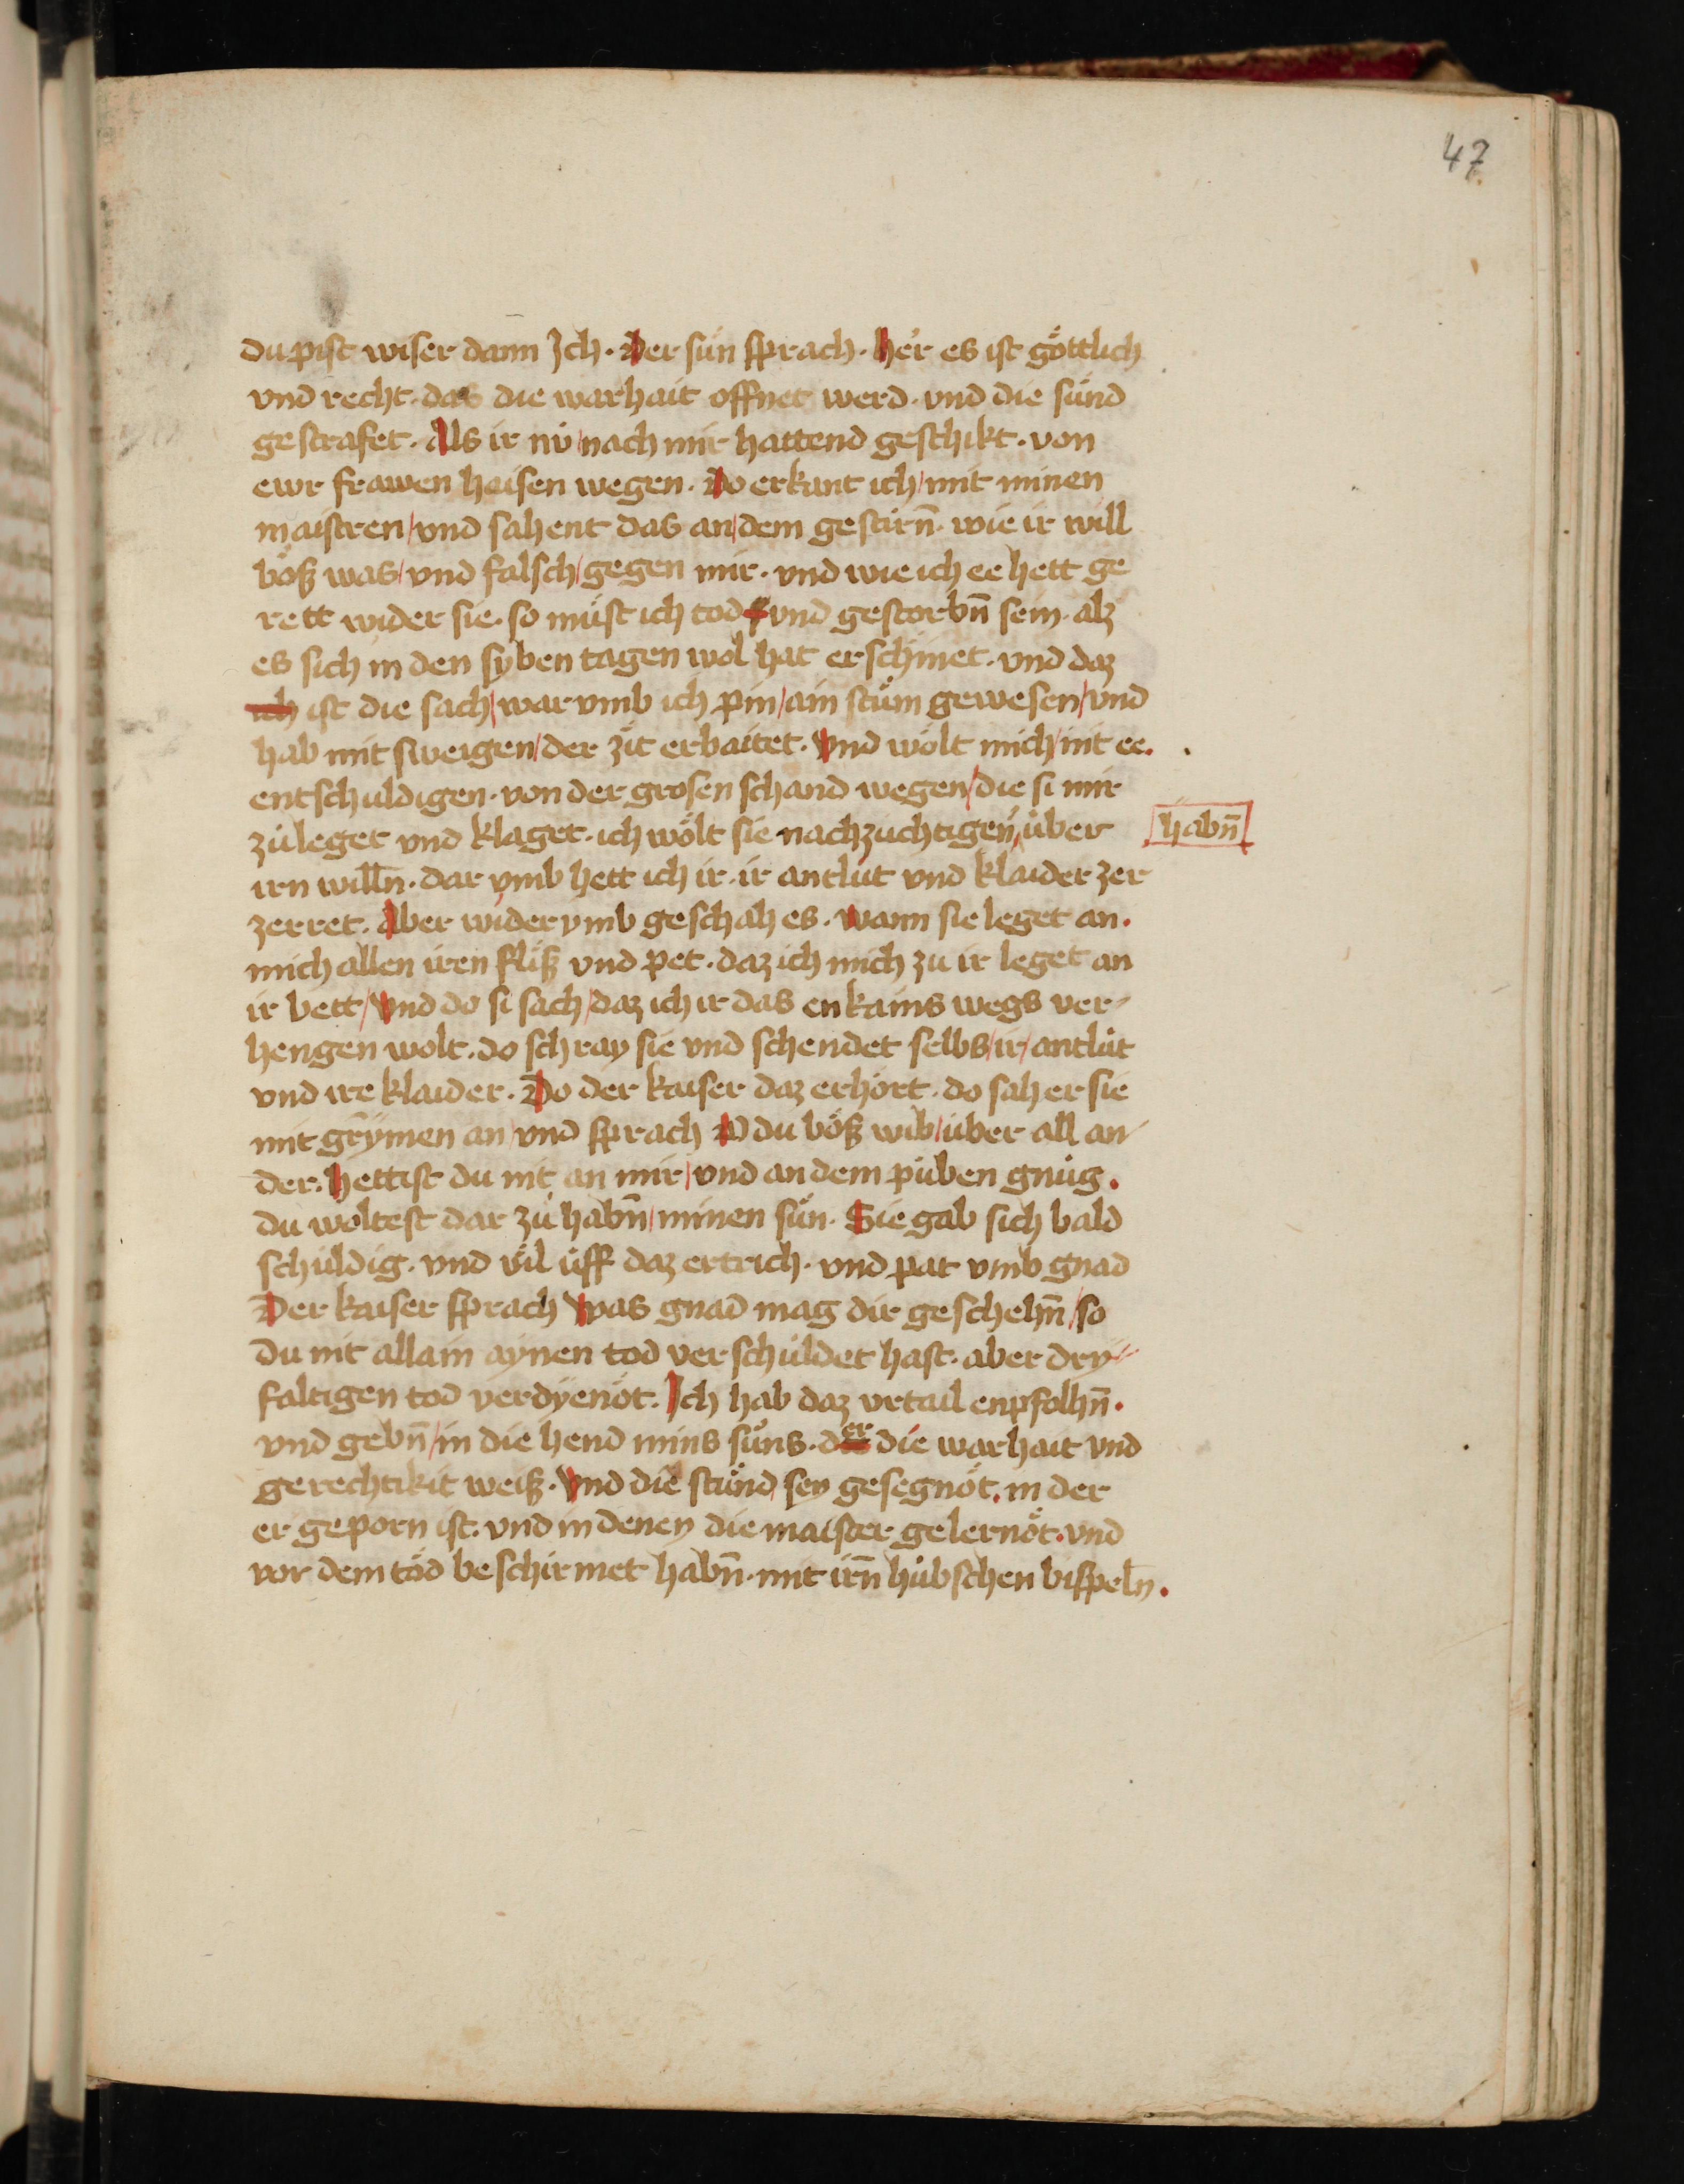 47
du pist wiser dann Ich · Der sün sprach · her es ist göttlich
vnd recht · das die warhait offnet werd · vnd die sünd
gestrafet · Als ir nů / nach mir hattend geschikt · von
ewr frawen haisen wegen · Do erkant ich / mit minen
maistren / vnd sahent das an / dem gestirn̄ · wie ir will
böß was / vnd falsch / gegen mir · vnd wie ich ee hett ge
rett wider sie · so müst ich tod vnd gestorbn̄ sein · alz
es sich in den syben tagen wol hat erschinet · vnd daz
ich ist die sach / war vmb ich pin / ain stum gewesen / vnd
hab mit sweigen / der zit erbaitet · Vnd wolt mich / nit ee.
entschuldigen · von der grosen schand wegen / die si mir
zů leget vnd klaget · ich wölt sie nachzuchtigen / über habn̄
irn willn̄ · dar vmb hett ich ir · ir antlüt vnd klaider zer
zerret · Aber widerymb geschah es · wann sie leget an .
mich allen iren fliß vnd pet · daz ich mich zu ir leget an
ir bett / Vnd do si sach / daz ich ir das enkains wegs ver-
hengen wolt · do schray sie vnd schendet selbs / ir / antlüt
vnd ire klaider · Do der kaiser daz erhört · do sah er sie
mit grymen an / vnd sprach O du böß wib / über all an-
der · hettist du nit an mir / vnd an dem püben gnůg .
du woltest dar zů habn̄ / minen sün · Sie gab sich bald
schuldig · vnd vil vff daz ertrich · vnd pat vmb gnad
Der kaiser sprach Was gnad mag dir geschehn̄ / so
du nit allain aynen tod verschuldet hast · aber dry-
faltigen tod verdyenöt · Ich hab daz vrtail enpfolhn̄ .
vnd gebn̄ / in die hend mins süns · der die warhait vnd
gerechtikit weiß · Vnd die stünd / sey gesegnöt . in der
er geporn ist · vnd in deney die maister gelernöt . vnd
vor dem töd beschirmet habn̄ · mit irn̄ hübschen bispeln̄ .